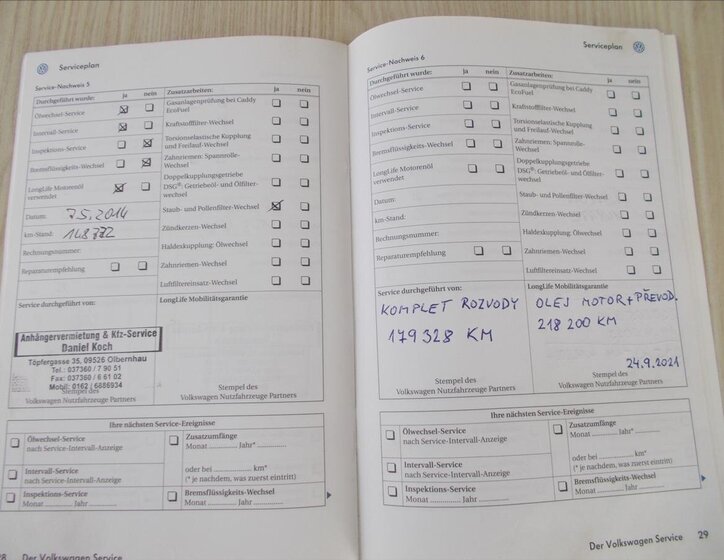 Serviceplan
Service-Nachweis 5
Durchgeführt wurde: ja nein
Ölwechsel-Service
Intervall-Service
Inspektions-Service
Bremsflüssigkeits-Wechsel
LongLife Motorenöl
verwendet
Datum: 7.5.2014
km-Stand: 148 772
Rechnungsnummer:
Reparaturempfehlung
Zusatzarbeiten: ja nein
Gasanlagenprüfung bei Caddy
EcoFuel
Kraftstofffilter-Wechsel
Torsionselastische Kupplung
und Freilauf-Wechsel
Zahnriemen- Spannrolle-
Wechsel
Doppelkupplungsgetriebe
DSG®: Getriebeöl- und Ölfilter-
wechsel
Staub- und Pollenfilter-Wechsel
Zündkerzen-Wechsel
Haldexkupplung: Ölwechsel
Zahnriemen-Wechsel
Luftfiltereinsatz-Wechsel
Service durchgeführt von:
Anhängervermietung & Kfz-Service
Daniel Koch
Töpfergasse 35, 09526 Olbernhau
Tel.: 037360 / 7 90 51
Fax: 037360 / 6 61 02
Mobil: 0162 / 6886934
Stempel des
Volkswagen Nutzfahrzeuge Partners
LongLife Mobilitätsgarantie
Stempel des
Volkswagen Nutzfahrzeuge Partners
Ihre nächsten Service-Ereignisse
Ölwechsel-Service
nach Service-Intervall-Anzeige
Intervall-Service
nach Service-Intervall-Anzeige
Inspektions-Service
Monat Jahr
Zusatzumfänge
Monat Jahr*
oder bei km*
(* je nachdem, was zuerst eintritt)
Bremsflüssigkeits-Wechsel
Monat Jahr
Der Volkswagen Service
Serviceplan
Service-Nachweis 6
Durchgeführt wurde: ja nein
Ölwechsel-Service
Intervall-Service
Inspektions-Service
Bremsflüssigkeits-Wechsel
LongLife Motorenöl
verwendet
Datum:
km-Stand:
Rechnungsnummer:
Reparaturempfehlung
Zusatzarbeiten: ja nein
Gasanlagenprüfung bei Caddy
EcoFuel
Kraftstofffilter-Wechsel
Torsionselastische Kupplung
und Freilauf-Wechsel
Zahnriemen- Spannrolle-
Wechsel
Doppelkupplungsgetriebe
DSG®: Getriebeöl- und Ölfilter-
wechsel
Staub- und Pollenfilter-Wechsel
Zündkerzen-Wechsel
Haldexkupplung: Ölwechsel
Zahnriemen-Wechsel
Luftfiltereinsatz-Wechsel
Service durchgeführt von:
KOMPLET ROZVODY
179 328 KM
Stempel des
Volkswagen Nutzfahrzeuge Partners
LongLife Mobilitätsgarantie
OLEJ MOTOR + PŘEVOD.
218 200 KM
24.9.2021
Stempel des
Volkswagen Nutzfahrzeuge Partners
Ihre nächsten Service-Ereignisse
Ölwechsel-Service
nach Service-Intervall-Anzeige
Intervall-Service
nach Service-Intervall-Anzeige
Inspektions-Service
Monat Jahr
Zusatzumfänge
Monat Jahr*
oder bei km*
(* je nachdem, was zuerst eintritt)
Bremsflüssigkeits-Wechsel
Monat Jahr
Der Volkswagen Service 29